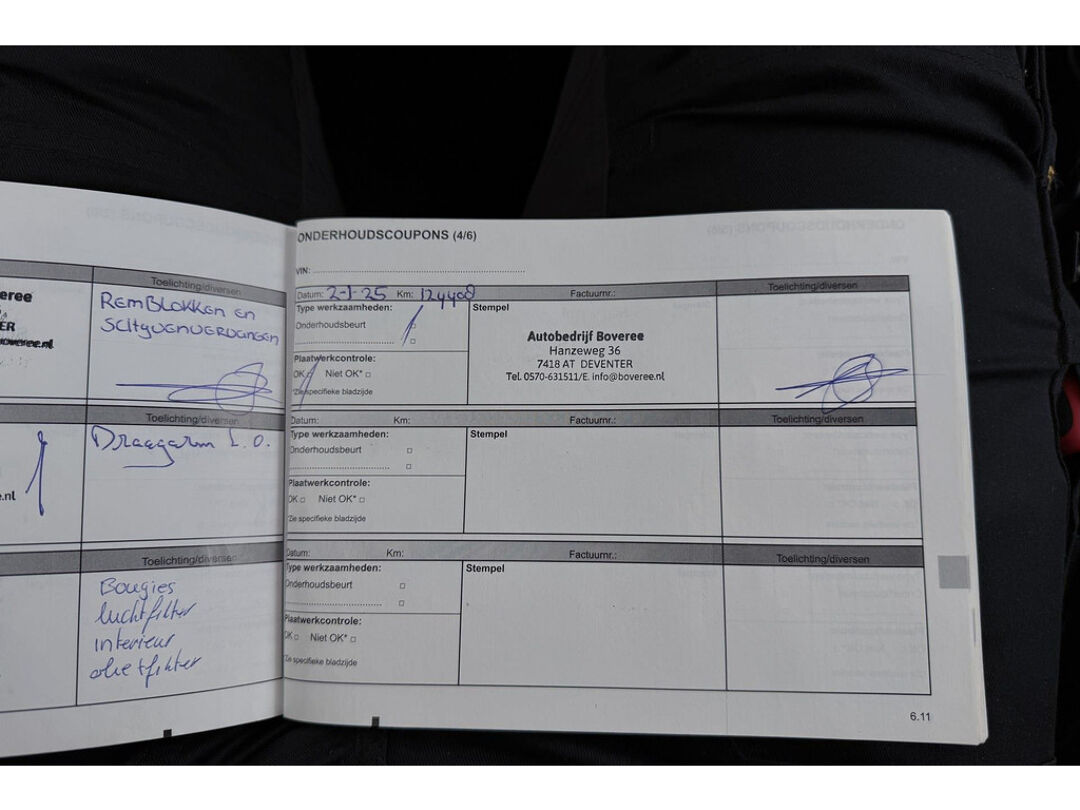 eree
ER
boveree.nl
Toelichting/diversen
REMBLOKKEN EN
SCHYVENVERVANGEN
Toelichting/diversen
Draagarm L.O.
e.nl
Toelichting/diversen
Bougies
luchtfilter
interieur
oliefilter
ONDERHOUDSCOUPONS (4/6)
VIN:
Datum: 2-1-25 Km: 124408 Factuurnr.: Toelichting/diversen
Type werkzaamheden:
Onderhoudsbeurt
Plaatwerkcontrole:
OK Niet OK*
*Zie specifieke bladzijde
Stempel
Autobedrijf Boveree
Hanzeweg 36
7418 AT DEVENTER
Tel. 0570-631511/E. info@boveree.nl
Datum: Km: Factuurnr.: Toelichting/diversen
Type werkzaamheden:
Onderhoudsbeurt
Plaatwerkcontrole:
OK Niet OK*
*Zie specifieke bladzijde
Stempel
Datum: Km: Factuurnr.: Toelichting/diversen
Type werkzaamheden:
Onderhoudsbeurt
Plaatwerkcontrole:
OK Niet OK*
*Zie specifieke bladzijde
Stempel
6.11